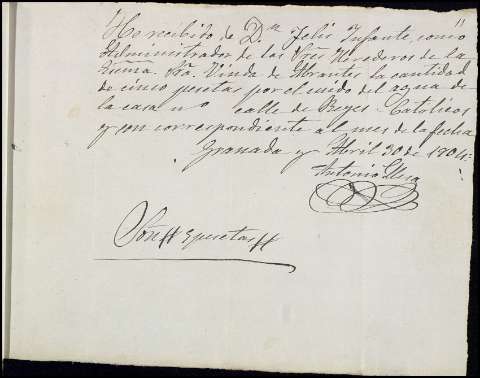 11
He recibido de Dn Felix Infante, como
Administrador de los Sres Herederos de la
Exma. Sra. Viuda de Abrantes la cantidad
de cinco pesetas por el cuido del agua de
la casa no calle de Reyes Catolicos
y son correspondiente al mes de la fecha
Granada y Abril 30 de 1904.
Antonio
Son # 5 pesetas #